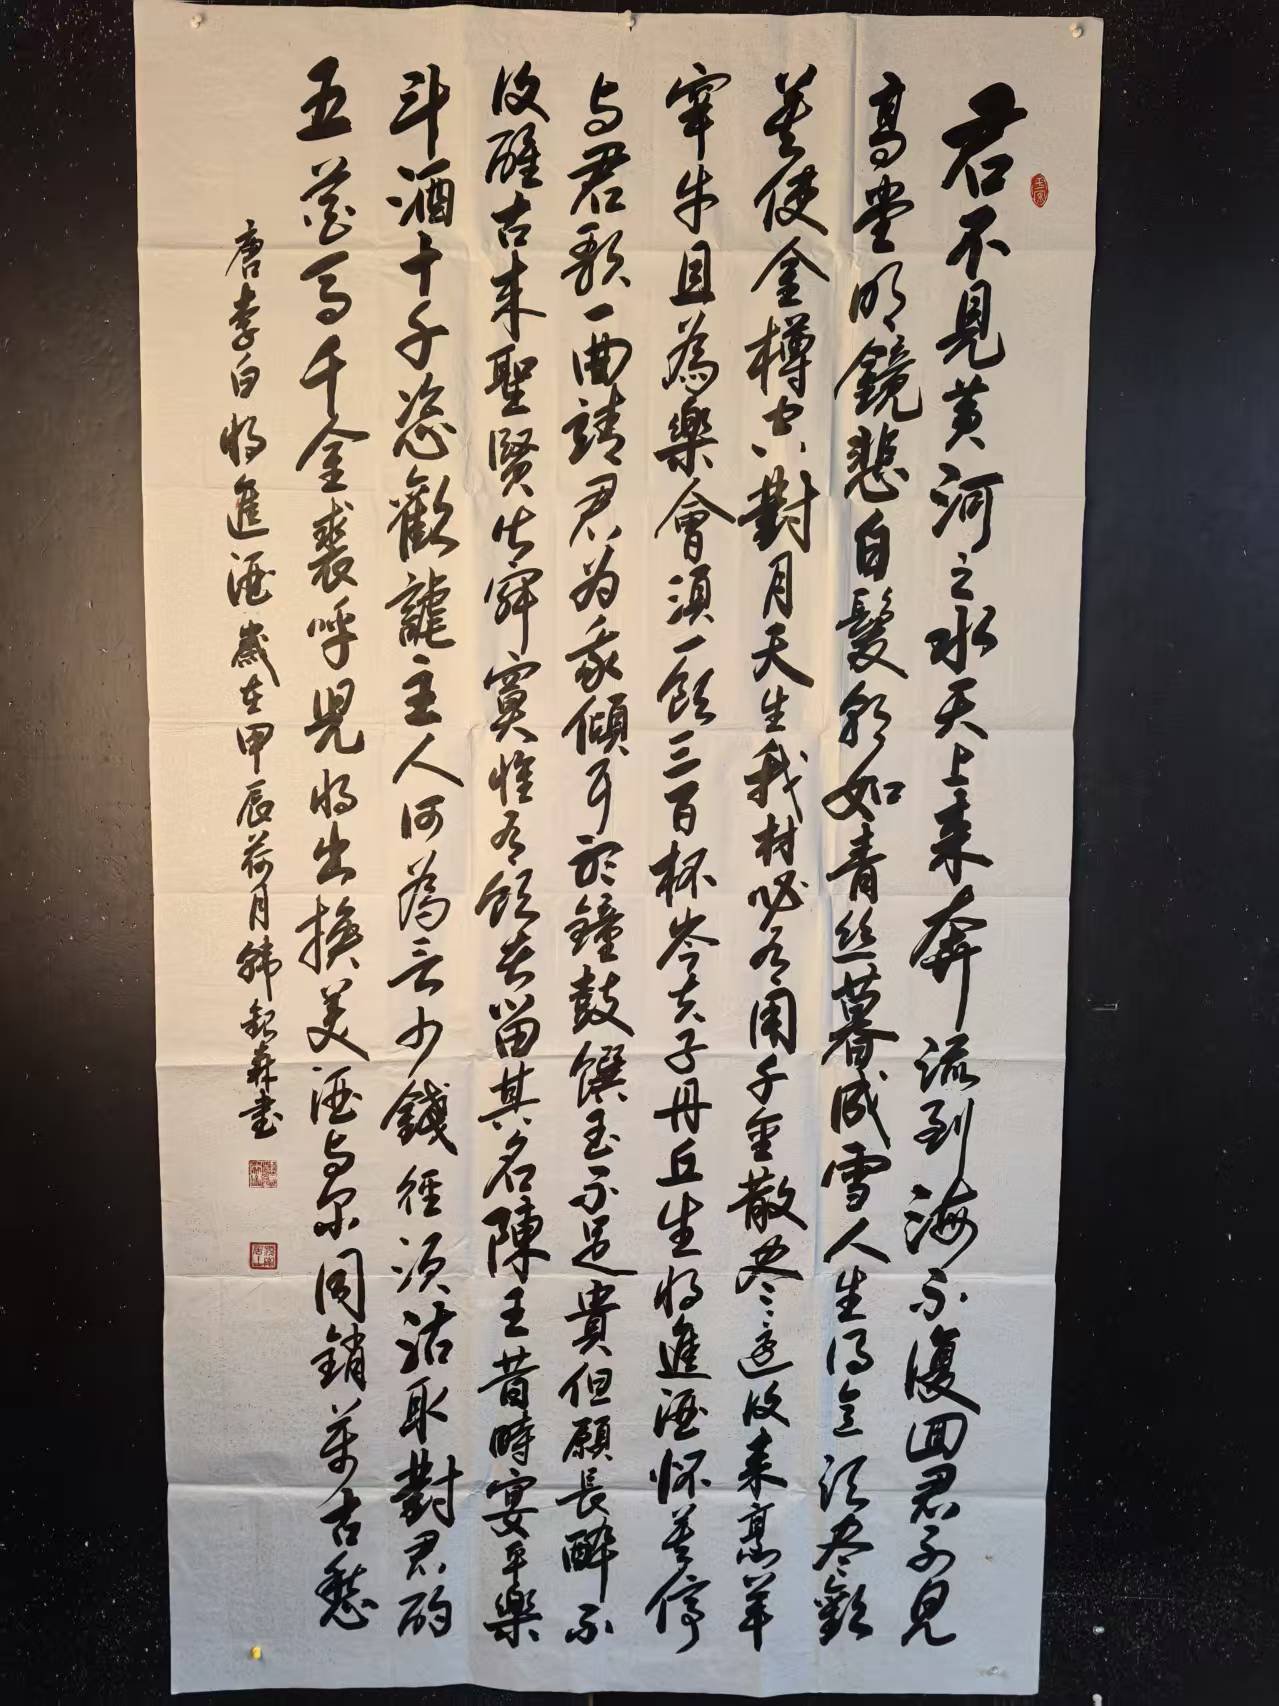 君不見黄河之水天上来奔流到海不復回君不見
高堂明鏡悲白髮朝如青丝暮成雪人生得意须尽歡
莫使金樽空對月天生我材必有用千金散尽還復来烹羊
宰牛且為樂會須一飲三百杯岑夫子丹丘生将進酒杯莫停
与君歌一曲請君为我傾耳聽鐘鼓饌玉不足貴但願長醉不
復醒古来聖賢皆寂寞惟有飲者留其名陳王昔時宴平樂
斗酒十千恣歡謔主人何為言少錢徑须沽取對君酌
五花马千金裘呼児将出换美酒与尔同銷萬古愁
唐李白将進酒歲在甲辰荷月韓 森书